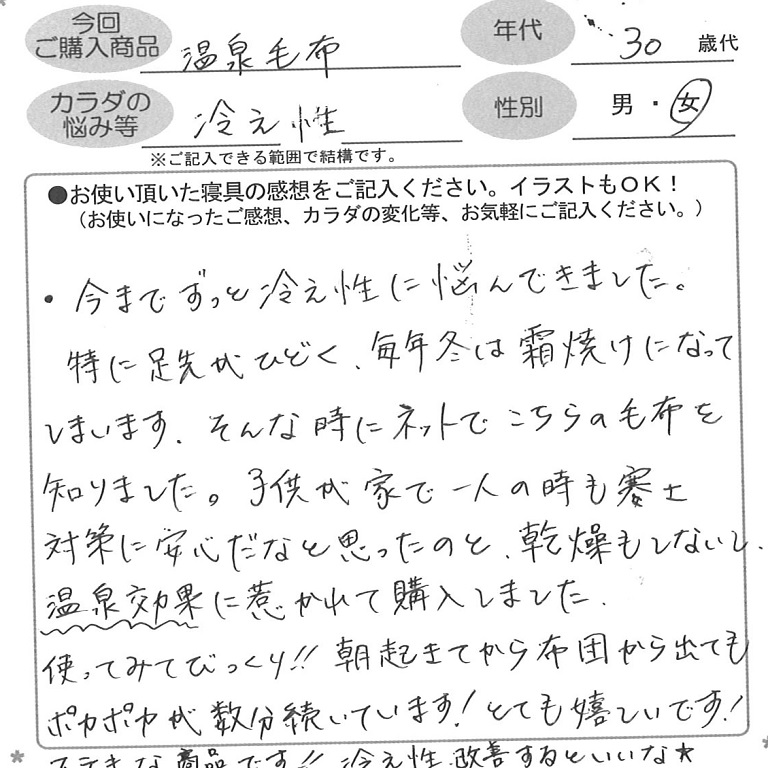 今回
ご購入商品
温泉毛布
年代
30 歳代
カラダの
悩み等
冷え性
性別
男・女
※ご記入できる範囲で結構です。
●お使い頂いた寝具の感想をご記入ください。イラストもOK!
(お使いになったご感想、カラダの変化等、お気軽にご記入ください。)
・今までずっと冷え性に悩んできました。
特に足先がひどく、毎年冬は霜焼けになって
しまいます。そんな時にネットでこちらの毛布を
知りました。子供が家で一人の時も寒さ
対策に安心だなと思ったのと、乾燥もしないし、
温泉効果に惹かれて購入しました。
使ってみてびっくり!!朝起きてから布団から出ても
ポカポカが数分続いています!とても嬉しいです!
ステキな商品です!!冷え性改善するといいな★